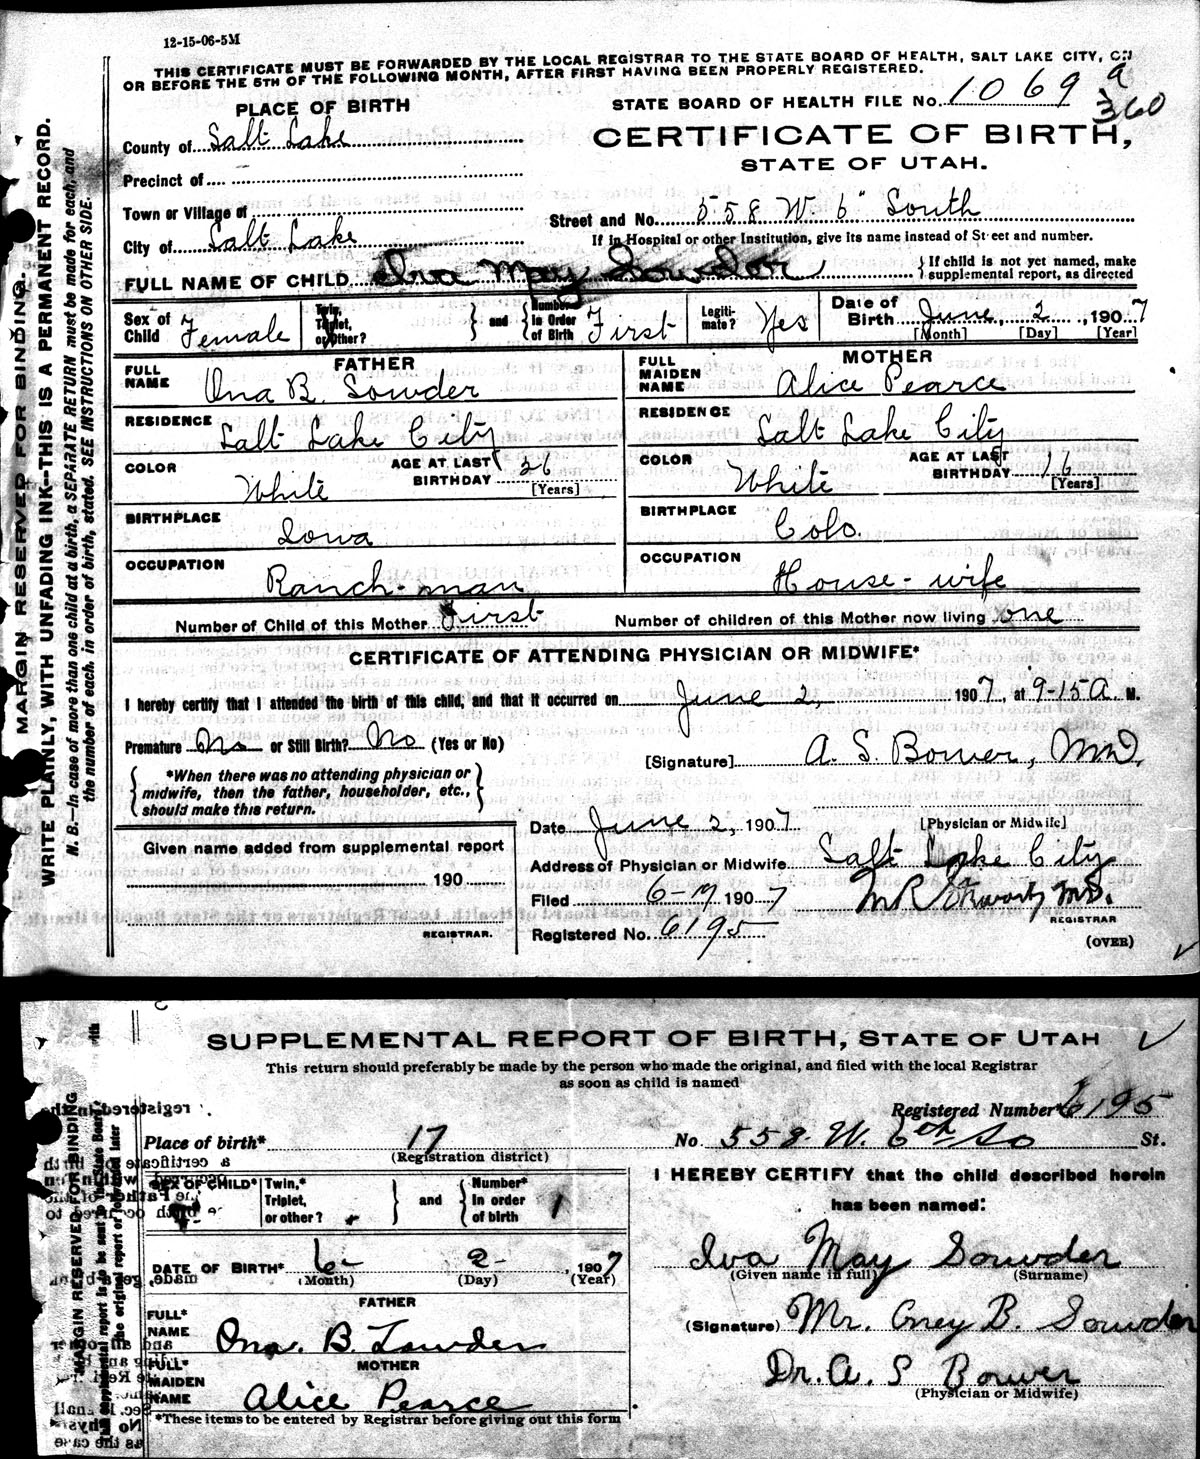 12-15-06-5M
THIS CERTIFICATE MUST BE FORWARDED BY THE LOCAL REGISTRAR TO THE STATE BOARD OF HEALTH, SALT LAKE CITY, ON
OR BEFORE THE 5TH OF THE FOLLOWING MONTH, AFTER FIRST HAVING BEEN PROPERLY REGISTERED.
PLACE OF BIRTH
STATE BOARD OF HEALTH FILE No. 1069 a
360
County of Salt Lake
CERTIFICATE OF BIRTH,
STATE OF UTAH.
Precinct of
Town or Village of
Street and No. 558 W. 6" South
City of Salt Lake
If in Hospital or other Institution, give its name instead of Street and number.
FULL NAME OF CHILD Iva May Sowder
If child is not yet named, make supplemental report, as directed
Sex of Child Female Twin, Triplet, or Other? and Number in Order of Birth First Legitimate? Yes Date of Birth June, 2, 1907
[Month] [Day] [Year]
FATHER
FULL NAME Ona B. Sowder
RESIDENCE Salt Lake City
COLOR White AGE AT LAST BIRTHDAY 26 [Years]
BIRTHPLACE Iowa
OCCUPATION Ranch-man
MOTHER
FULL MAIDEN NAME Alice Pearce
RESIDENCE Salt Lake City
COLOR White AGE AT LAST BIRTHDAY 16 [Years]
BIRTHPLACE Colo.
OCCUPATION House-wife
Number of Child of this Mother First Number of children of this Mother now living one
CERTIFICATE OF ATTENDING PHYSICIAN OR MIDWIFE*
I hereby certify that I attended the birth of this child, and that it occurred on June 2, 1907, at 9-15 A. M.
Premature No or Still Birth? No (Yes or No)
[Signature] A. S. Bower, MD.
*When there was no attending physician or
midwife, then the father, householder, etc.,
should make this return.
[Physician or Midwife]
Date June 2, 1907
Given name added from supplemental report
190
REGISTRAR.
Address of Physician or Midwife Salt Lake City
Filed 6-19 1907
REGISTRAR
Registered No. 6195
(OVER)
MARGIN RESERVED FOR BINDING.
WRITE PLAINLY, WITH UNFADING INK--THIS IS A PERMANENT RECORD.
N. B.—In case of more than one child at a birth, a SEPARATE RETURN must be made for each, and
the number of each, in order of birth, stated. SEE INSTRUCTIONS ON OTHER SIDE.
SUPPLEMENTAL REPORT OF BIRTH, STATE OF UTAH
This return should preferably be made by the person who made the original, and filed with the local Registrar
as soon as child is named
Registered Number* 6195
Place of birth* 17 No 558. W. 6th So St.
(Registration district)
SEX OF CHILD* Twin,* Triplet, or other? and Number* In order of birth 1
I HEREBY CERTIFY that the child described herein
has been named:
DATE OF BIRTH* 6- 2 , 1907
(Month) (Day) (Year)
Iva May Sowder
(Given name in full) (Surname)
FATHER
FULL* NAME Ona. B. Sowder
(Signature) Mr. Oney B. Sowder
MOTHER
FULL* MAIDEN NAME Alice Pearce
Dr. A. S Bower
(Physician or Midwife)
*These items to be entered by Registrar before giving out this form
MARGIN RESERVED FOR BINDING